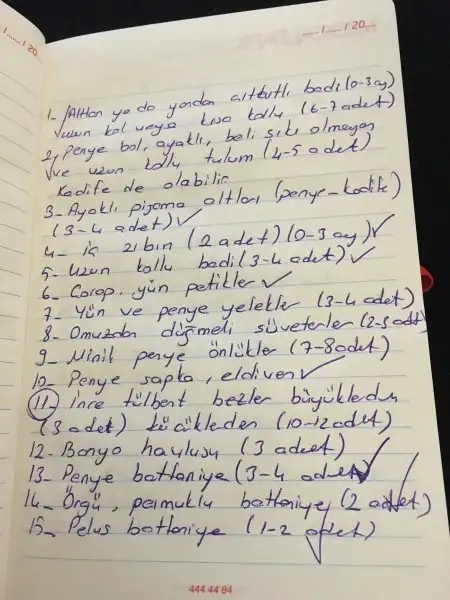 ....../....../ 20....
/....../ 20
1- Alttan ya da yandan çıtçıtlı badi (0-3 ay)
uzun kol veya kısa kollu (6-7 adet)
2, Penye bol, ayaklı, beli sıkı olmayan
ve uzun kollu tulum (4-5 adet)
Kadife de olabilir
3- Ayaklı pijama altları (penye-kadife)
(3-4 adet) ✓
4- iç zıbın (2 adet) (0-3 ay) ✓
5- uzun kollu badi (3-4 adet) ✓
6- Çorap, yün patikler ✓
7- Yün ve penye yelekler (3-4 adet)
8- Omuzdan düğmeli süveterler (2-3 adt)
9- Minik penye önlükler (7-8 adet)
10- Penye şapka, eldiven ✓
11- ince tülbent bezler büyüklerden
(3 adet) küçüklerden (10-12 adet)
12- Banyo havlusu (3 adet) ✓
13- Penye battaniye (3-4 adet) ✓
14- Örgü, pamuklu battaniye (2 adet)
15- Peluş battaniye (1-2 adet)
444 44 84